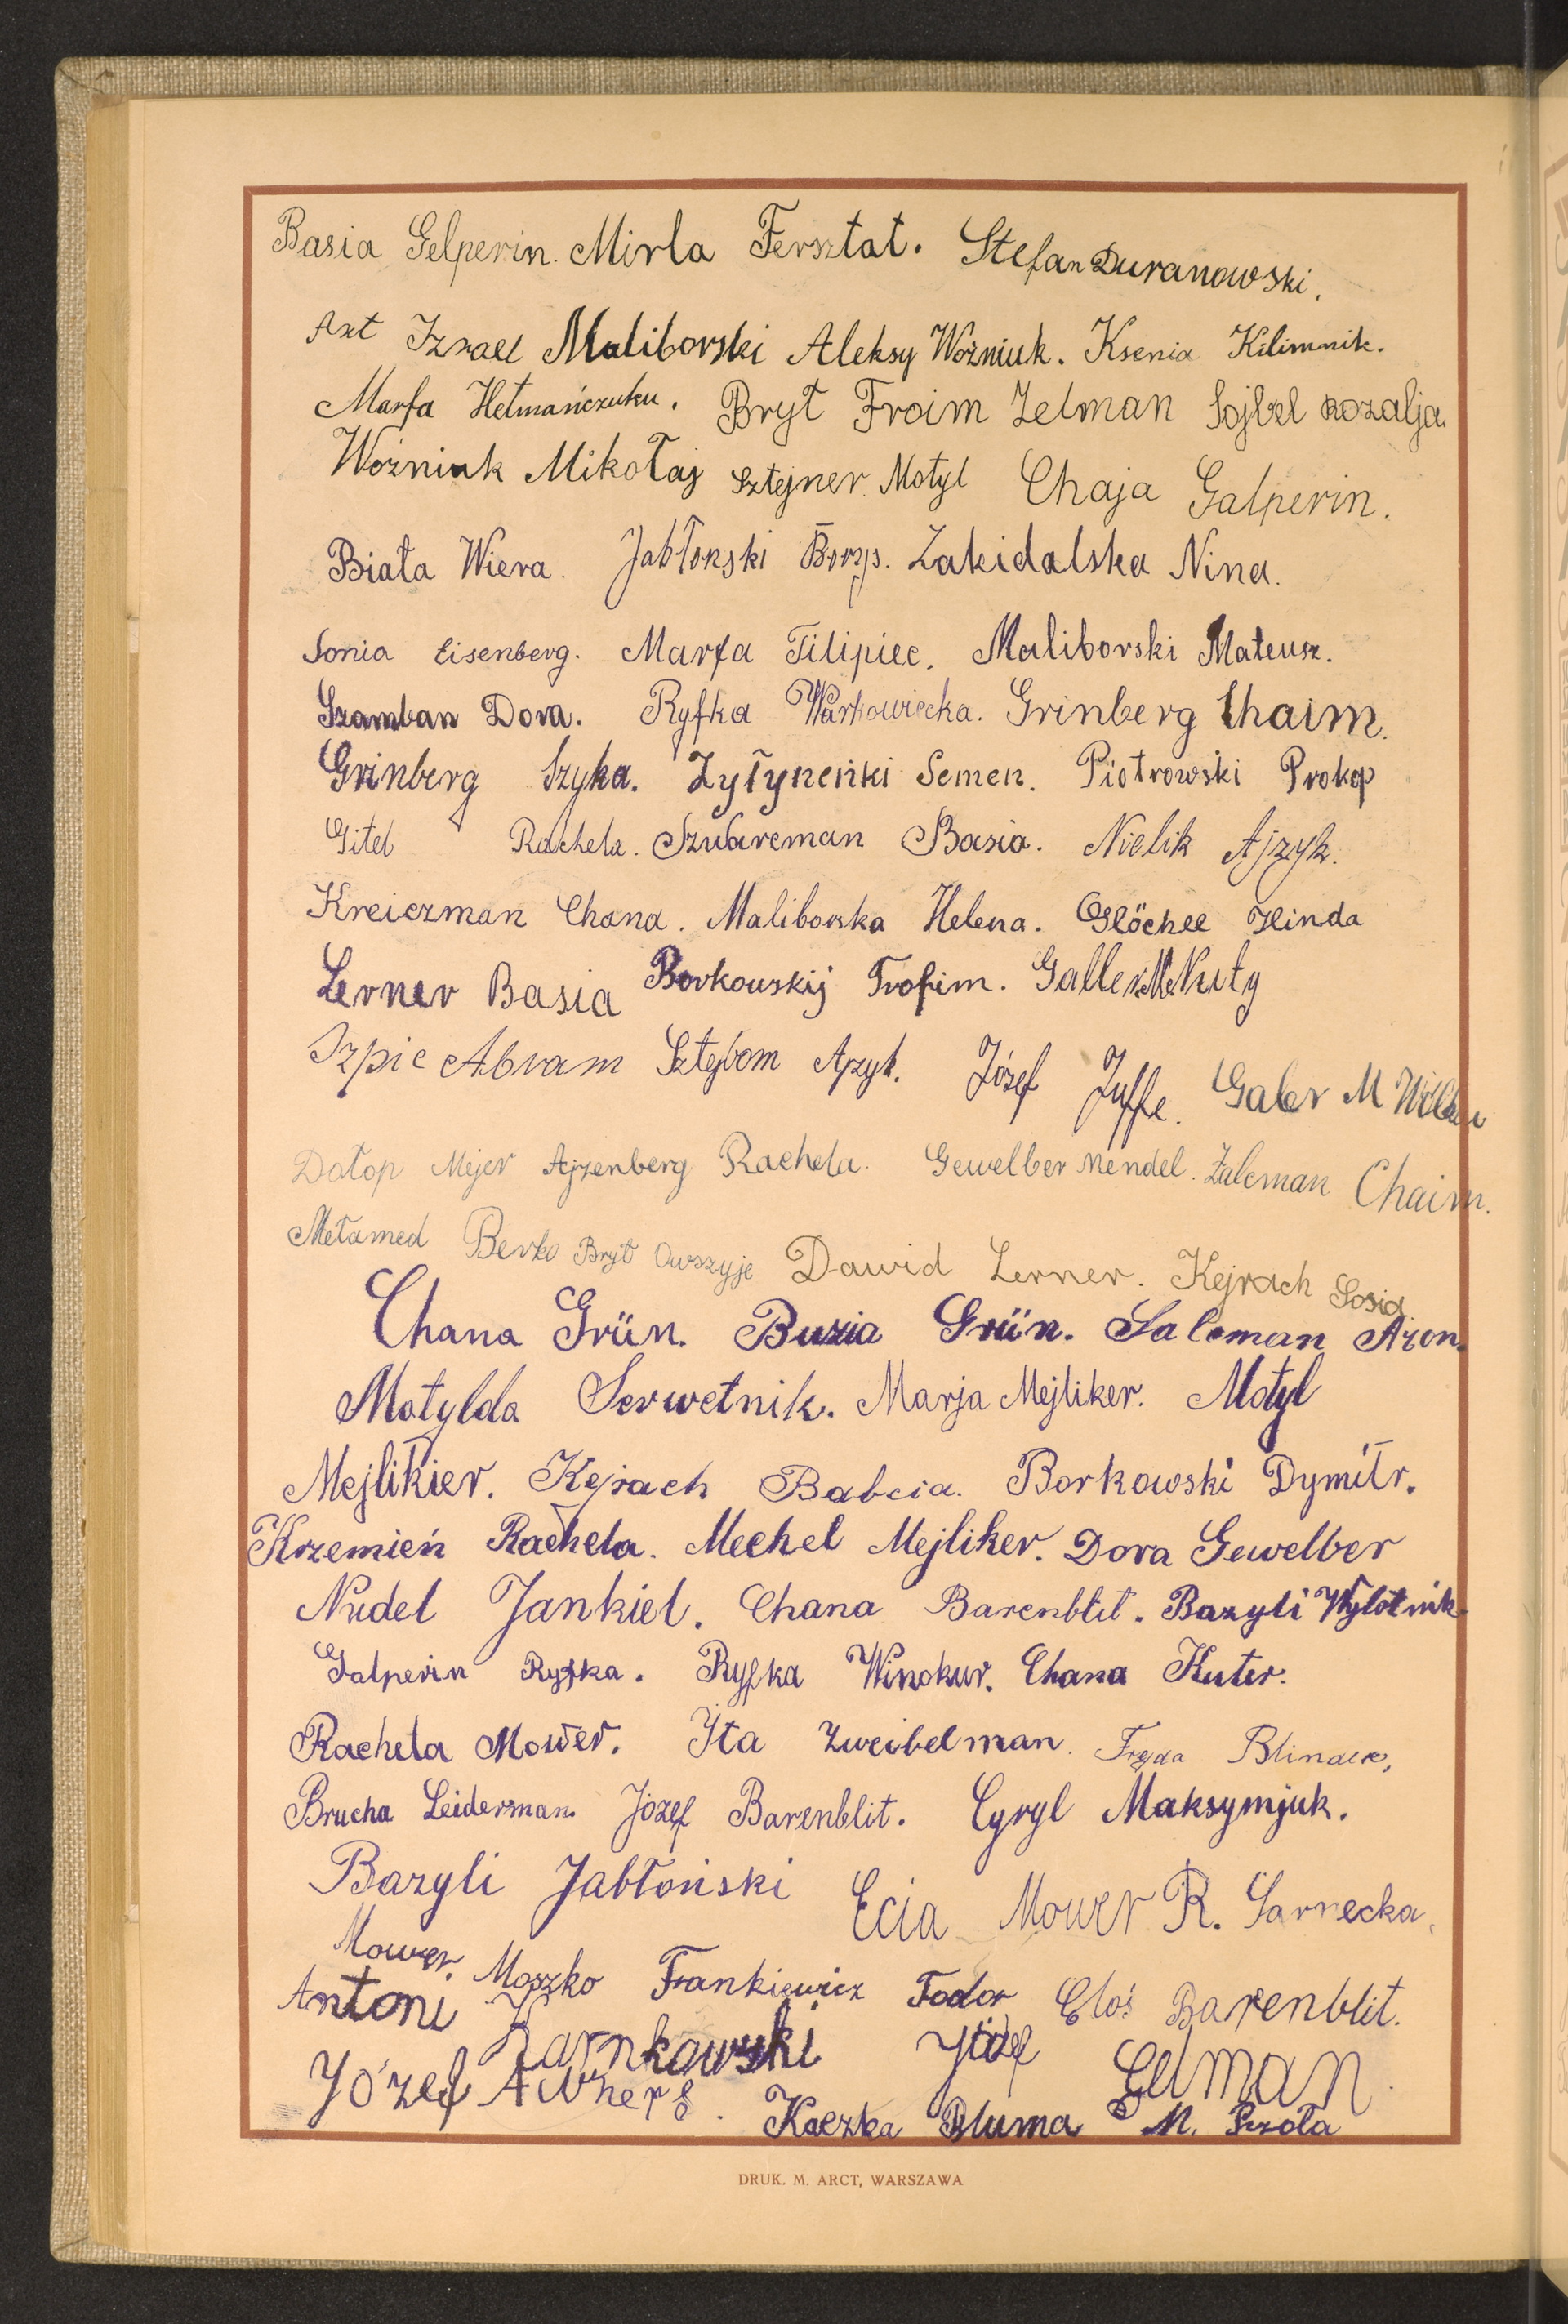 Basia Gelperin. Mirla Fersztat. Stefan Duranowski.
Axt Izrael Maliborski Aleksy Woźniuk. Ksenia Kilimnik.
Marfa Hetmańczuku. Bryt Froim Zelman Sojbel Rozalja.
Woźniuk Mikołaj Sztejner Motyl Chaja Galperin.
Biała Wiera. Jabłonski Borys. Zakidalska Nina.
Sonia Eisenberg. Marfa Filipiec. Maliborski Mateusz.
Szamban Dora. Ryfka Warkowiecka. Grinberg Chaim.
Grinberg Szyka. Żyłyneńki Semen. Piotrowski Prokop
Gitel Rachela. Szubreman Basia. Nielik Ajzyk.
Kreiczman Chana. Maliborska Helena. Glöckel Hinda
Lerner Basia Borkowskij Trofim. Galler M. Nuty
Szpic Abram Sztejbom Ajzyk. Józef Juffe. Galer M
Dołop Mejer Ajzenberg Rachela. Gewelber Mendel. Zalcman Chaim.
Mełamed Berko Bryt Owszyje Dawid Lerner. Kejrach Sosia
Chana Grün. Buzia Grün. Saleman Aron.
Matylda Serwetnik. Marja Mejliker. Motyl
Mejlikier. Kejrach Babcia. Borkowski Dymitr.
Krzemień Rachela. Mechel Mejliker. Dora Gewelber
Nudel Jankiel. Chana Barenblit. Bazyli Wyłotnik.
Galperin Ryfka. Ryfka Winokur. Chana Kuter.
Rachela Mower. Ita Zweibelman. Frejda Blinder,
Brucha Leiderman. Józef Barenblit. Cyryl Maksymjuk.
Bazyli Jabłoński Ecia Mower R. Sarnecka.
Mower. Moszko Frankiewicz Fodor Eloś Barenblit.
Antoni Karnkowski Józef Gelman.
Józef Kaczka Bluma M. Szoła
DRUK. M. ARCT, WARSZAWA